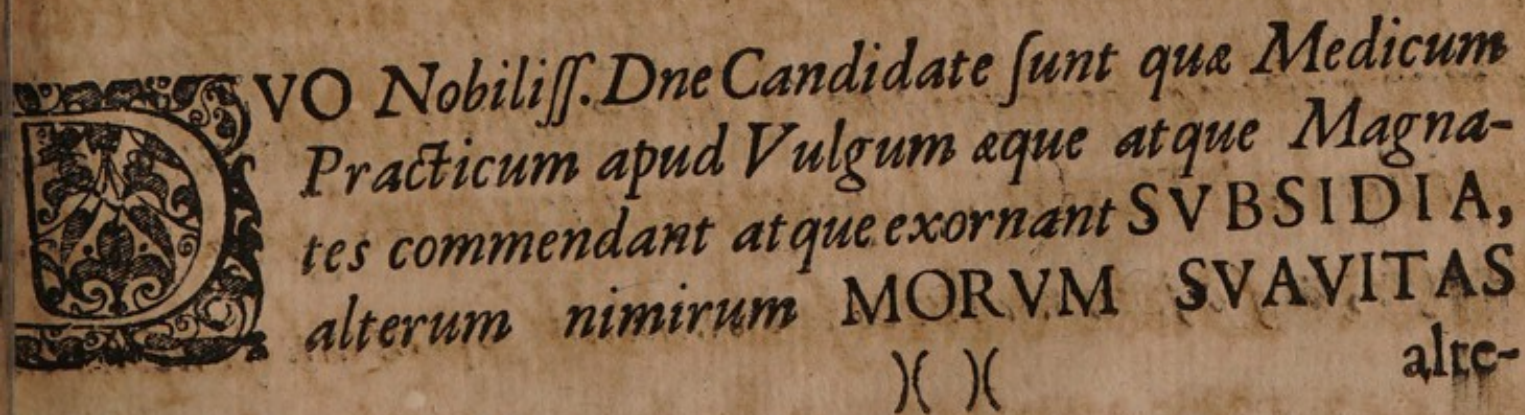 DVO Nobiliſſ. Dne Candidate ſunt quæ Medicum
Practicum apud Vulgum æque atque Magna-
tes commendant atque exornant SVBSIDIA,
alterum nimirum MORVM SVAVITAS
)( )(
alte-